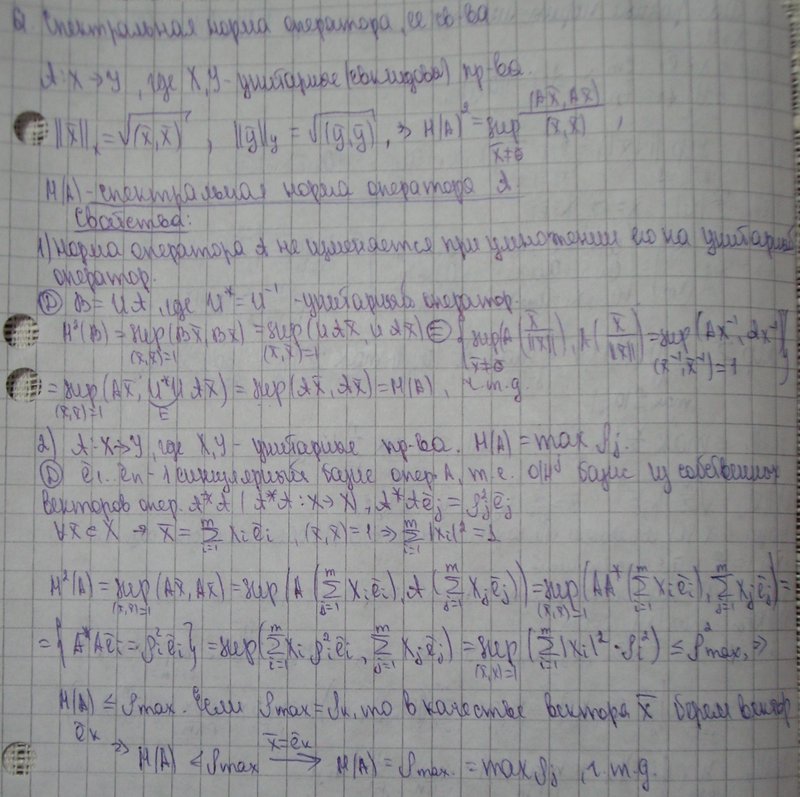 Спектральная норма оператора, ее св-ва
A: X→Y, где X,Y - унитарные (евклидовы) пр-ва.
||x̄||ₓ = √(x̄,x̄), ||ȳ||ᵧ = √(ȳ,ȳ), ⇒ M(A)² = sup_{x̄≠ō} (Ax̄, Ax̄)/(x̄,x̄),
M(A) - спектральная норма оператора A.
Свойства:
1) норма оператора A не изменяется при умножении его на унитарный
оператор.
Ⓓ B = UA, где U* = U⁻¹ - унитарный оператор.
M²(B) = sup_{(x̄,x̄)=1} (Bx̄, Bx̄) = sup_{(x̄,x̄)=1} (UAx̄, UAx̄) ⊜ { sup_{x̄≠ō} (A(x̄/||x̄||), A(x̄/||x̄||)) = sup_{(x̄⁻¹,x̄⁻¹)=1} (Ax⁻¹, Ax⁻¹) }
= sup_{(x̄,x̄)=1} (Ax̄, U*UAx̄) = sup (Ax̄, Ax̄) = M(A), ч.т.д.
E
2) A: X→Y, где X,Y - унитарные пр-ва. M(A) = max ρⱼ.
Ⓓ ē₁..ēₙ - 1 сингулярный базис опер. A, т.е. о/н базис из собственных
векторов опер. A*A (A*A: X→X), A*Aēⱼ = ρⱼ²ēⱼ
∀x̄∈X → x̄ = Σ_{i=1}^{m} xᵢēᵢ, (x̄,x̄)=1 ⇒ Σ_{i=1}^{m} |xᵢ|² = 1
M²(A) = sup_{(x̄,x̄)=1} (Ax̄, Ax̄) = sup (A(Σ_{j=1}^{m} xᵢēᵢ), A(Σ_{j=1}^{m} xⱼēⱼ)) = sup_{(x̄,x̄)=1} (AA*(Σ_{i=1}^{m} xᵢēᵢ), Σ_{j=1}^{m} xⱼēⱼ) =
= {A*Aēᵢ = ρᵢ²ēᵢ} = sup (Σ_{i=1}^{m} xᵢρᵢ²ēᵢ, Σ_{j=1}^{m} xⱼēⱼ) = sup_{(x̄,x̄)=1} (Σ_{i=1}^{m} |xᵢ|²·ρᵢ²) ≤ ρ²max, ⇒
M(A) ≤ ρmax. Если ρmax = ρₖ, то в качестве вектора x̄ берем вектор
ēₖ ⇒ M(A) ≤ ρmax —x̄=ēₖ→ M(A) = ρmax = max ρⱼ, ч.т.д.